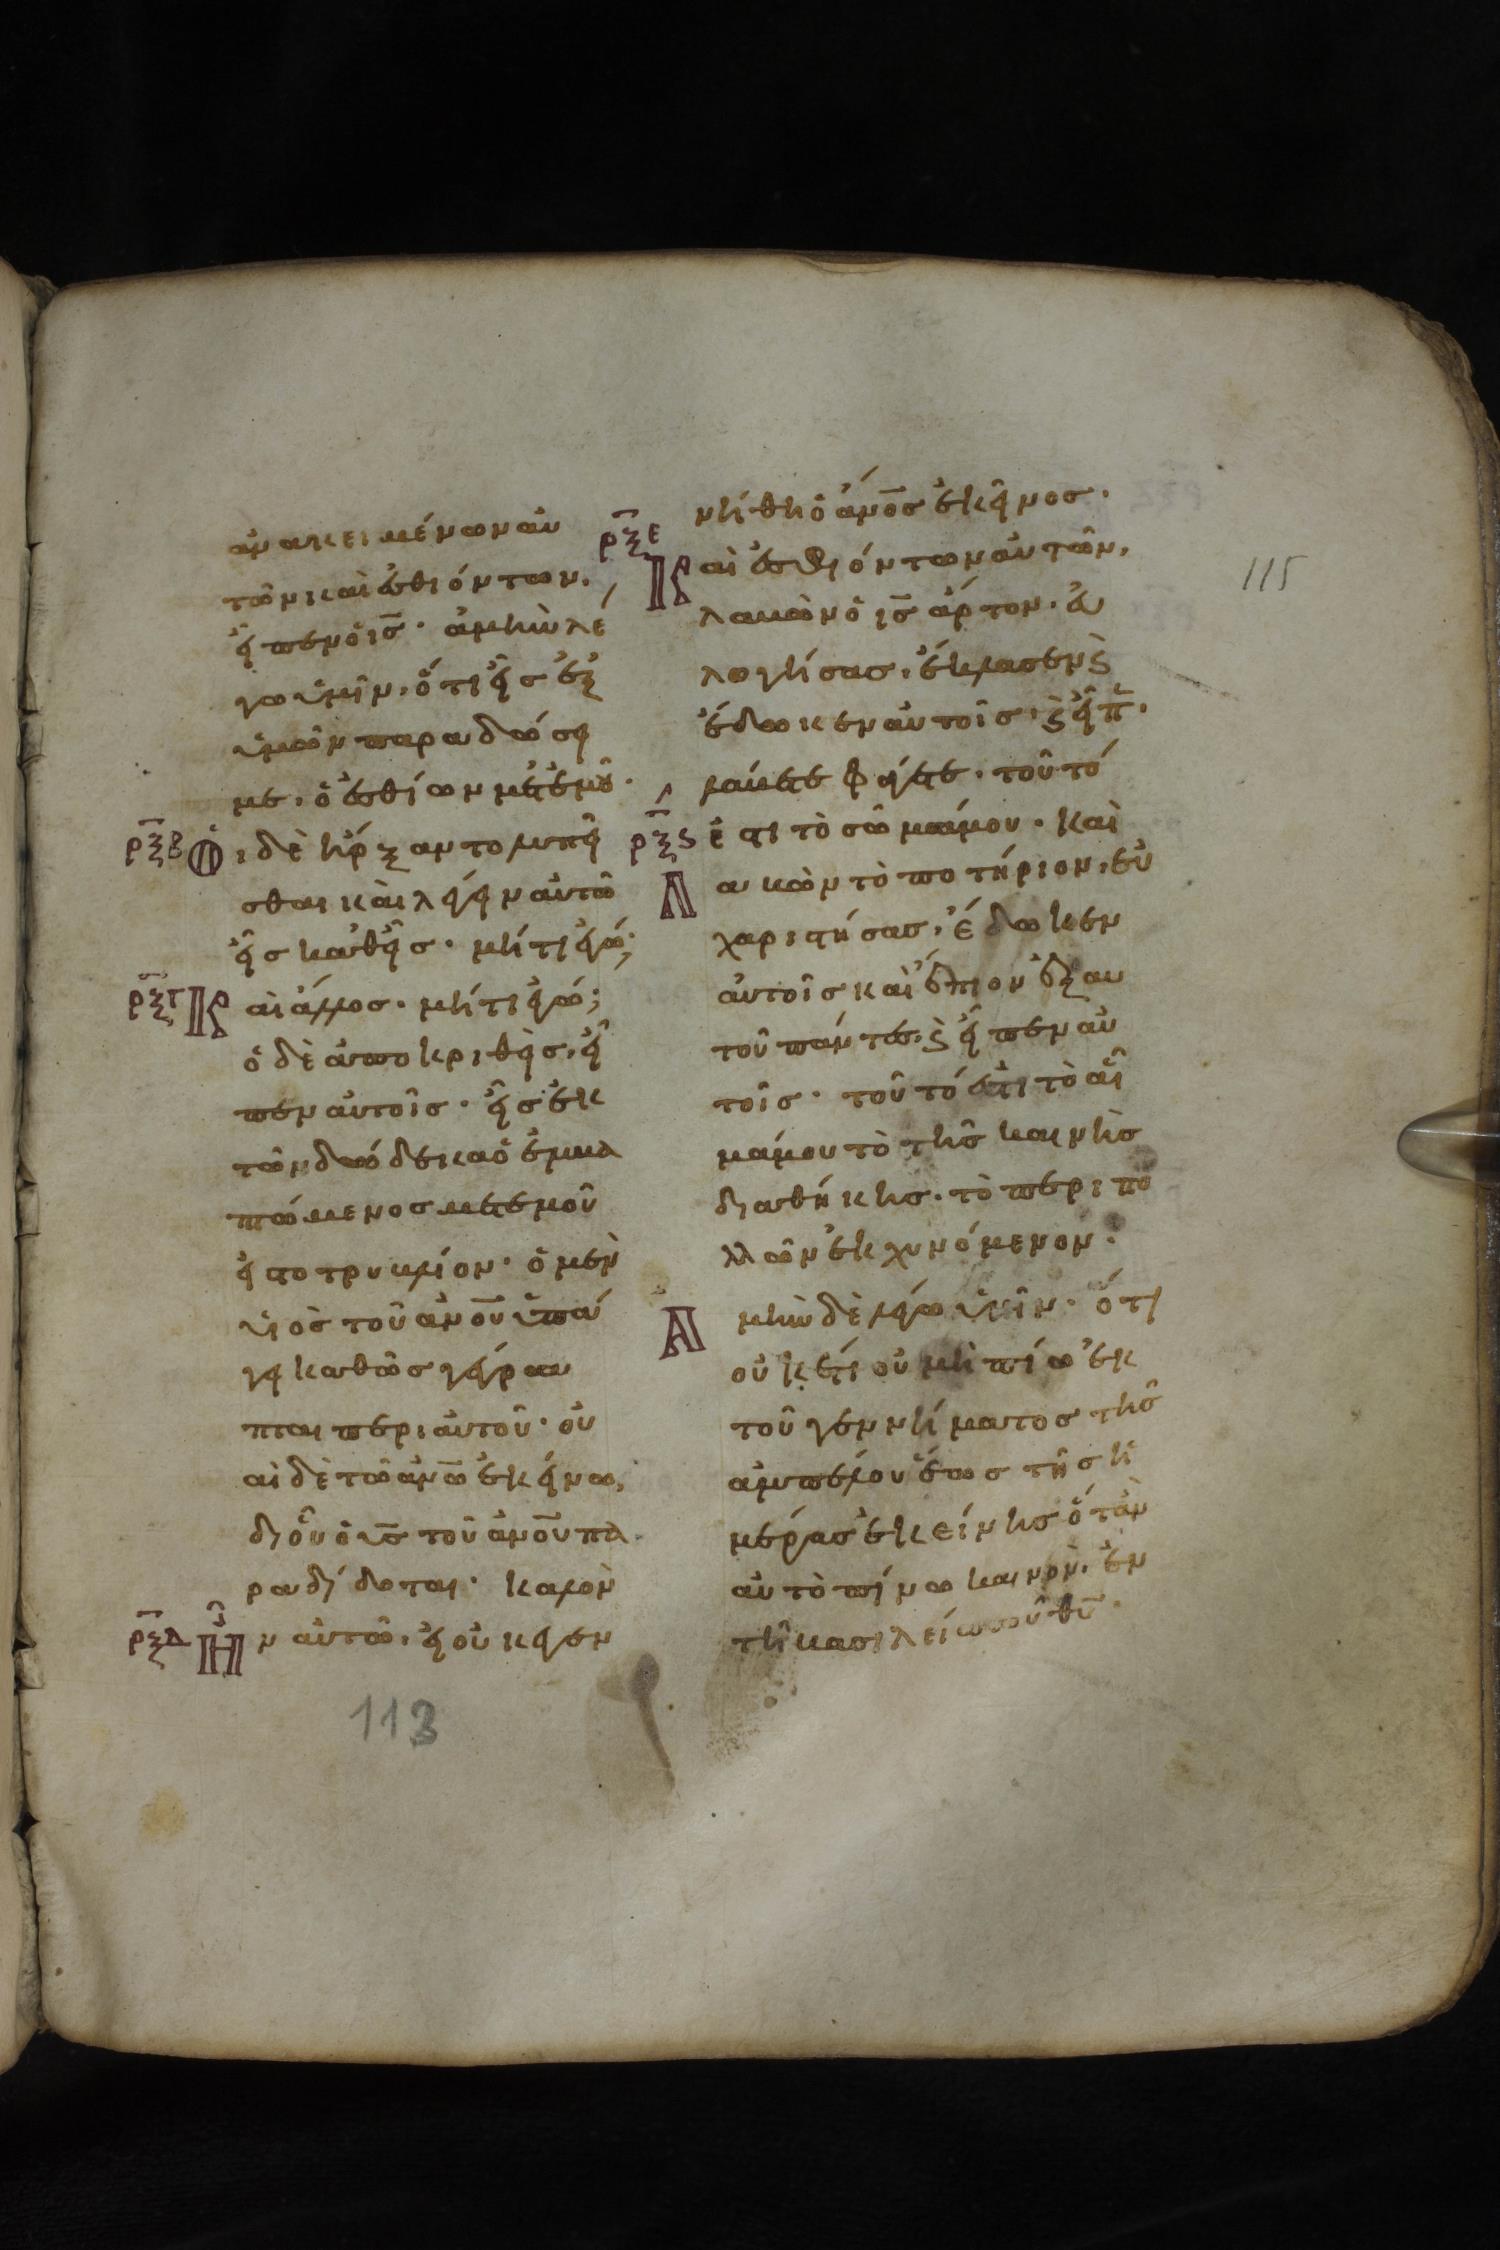 ἀνακειμένων αὐ
τῶν καὶ ἐσθιόντων,
εἶπεν ὁ ις̅· ἀμὴν λέ
γω ὑμῖν, ὅτι εἷς ἐξ
ὑμῶν παραδώσει
με, ὁ ἐσθίων μετ' ἐμοῦ·
ρξβ Οἱ δὲ ἤρξαντο λυπεῖ
σθαι καὶ λέγειν αὐτῶ
εἷς καθ' εἷς· μή τι ἐγώ;
ρξγ Καὶ ἄλλος· μή τι ἐγώ;
ὁ δὲ ἀποκριθεὶς, εἶ
πεν αὐτοῖς· εἷς ἐκ
τῶν δώδεκα ὁ ἐμβα
πτόμενος μετ' ἐμοῦ
εἰς το τρυβλίον· ὁ μὲν
υἱὸς τοῦ ἀνο̅υ̅ ὑπά
γει καθὼς γέγρα
πται περι αὐτοῦ· οὐ
αὶ δὲ τῶ ἀνω̅ ἐκείνω,
δι οὗ ὁ υς̅ τοῦ ἀνο̅υ̅ πα
ραδίδοται· καλὸν
ρξδ Ἦν αὐτῶ, εἰ οὐκ ἐγεν
νήθη ὁ ἀνο̅ς̅ ἐκεῖνος·
ρξε Καὶ ἐσθιόντων αὐτῶν,
λαβὼν ὁ ις̅ ἄρτον, εὐ
λογήσας, ἔκλασεν ϗ
ἔδωκεν αὐτοῖς, ϗ εἶπ̅·
λάβετε φάγετε, τοῦτό
ρξϛ ἐστι τὸ σῶμά μου· καὶ
Λαβὼν τὸ ποτήριον, εὐ
χαριστήσας, ἔδωκεν
αὐτοῖς καὶ ἔπιον ἐξ αυ
τοῦ πάντες, ϗ εἶπεν αὐ
τοῖς· τοῦτό ἐστι τὸ αἷ
μά μου τὸ τῆς καινῆς
διαθήκης· τὸ περι πο
λλῶν ἐκχυνόμενον·
Ἀμὴν δὲ λέγω ὑμῖν· ὅτι
οὐκέτι οὐ μὴ πίω ἐκ
τοῦ γεννήματος τῆς
ἀμπέλου ἕως τῆς ἡ
μέρας ἐκείνης ὅταν
αὐτὸ πίνω καινὸν, ἐν
τῆ βασιλεία τοῦ θυ̅·
115
113